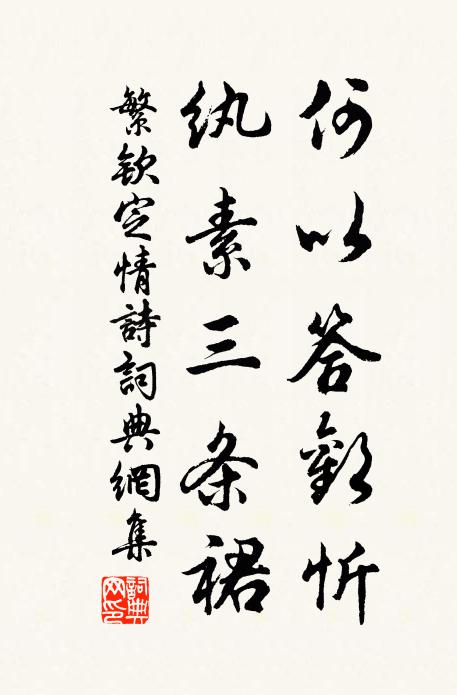 何以答歡忻
纨素三条裙
繁欽定情詩詞典網集
詞典網印